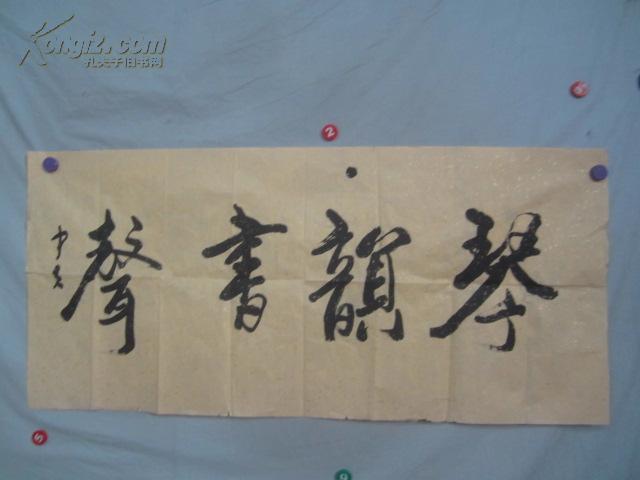 琴韻書聲
Kongfz.com
孔夫子旧书网
2
5